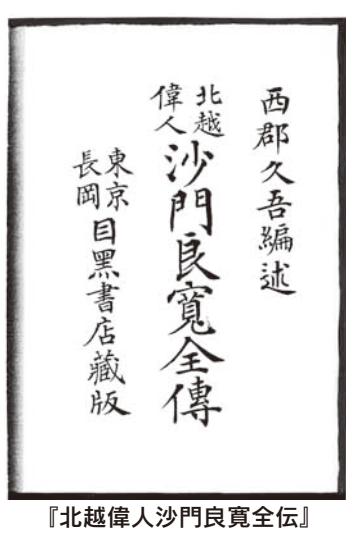 西郡久吾編述
北越
偉人
沙門良寛全傳
東京
長岡
目黑書店藏版
『北越偉人沙門良寛全伝』